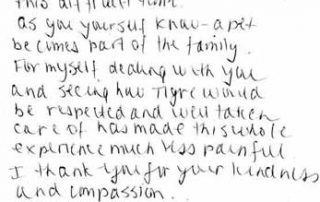 this difficult time.
as you yourself know - a pet
becomes part of the family.
For myself dealing with you
and seeing how Tigre would
be respected and well taken
care of has made this whole
experience much less painful.
I thank you for your kindness
and compassion.